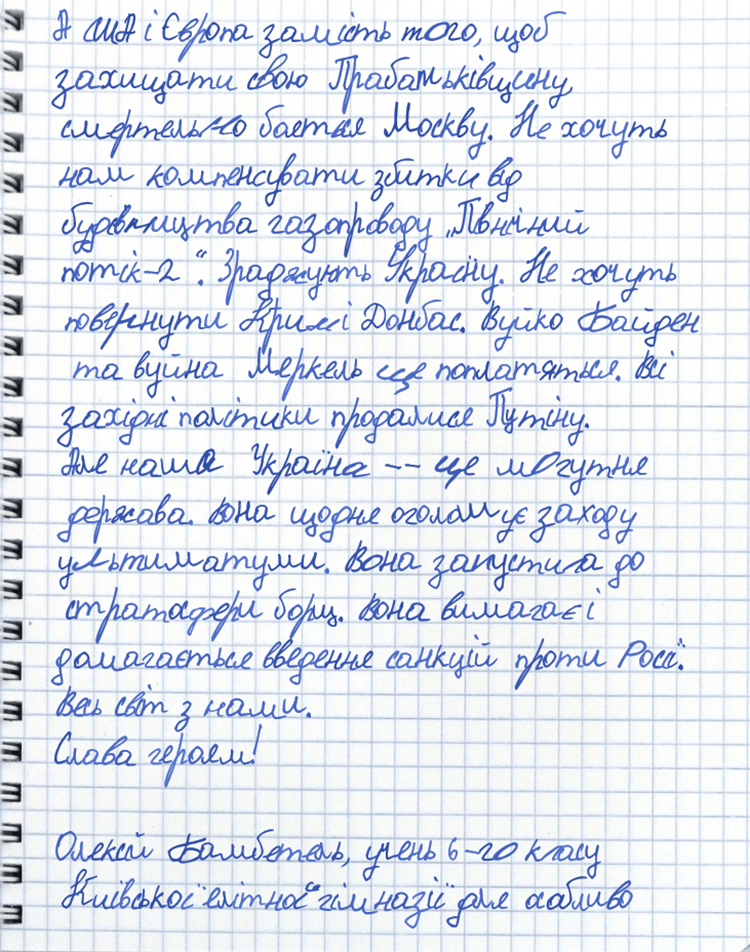 А США і Європа замість того, щоб
захищати свою Прабатьківщину,
смертельно бається Москву. Не хочуть
нам компенсувати збитки від
будівництва газопроводу „Північний
потік-2“. Зраджують Україну. Не хочуть
повернути Крим і Донбас. Вуйко Байден
та вуйна Меркель ще поплатяться. Всі
західні політики продалися Путіну.
Але наша Україна -- це могутня
держава. Вона щодня оголошує заходу
ультиматуми. Вона запустила до
стратосфери борщ. Вона вимагає і
домагається введення санкцій проти Росії.
Весь світ з нами.
Слава героям!
Олексій Бамбетель, учень 6-го класу
Київської "елітної" гімназії для